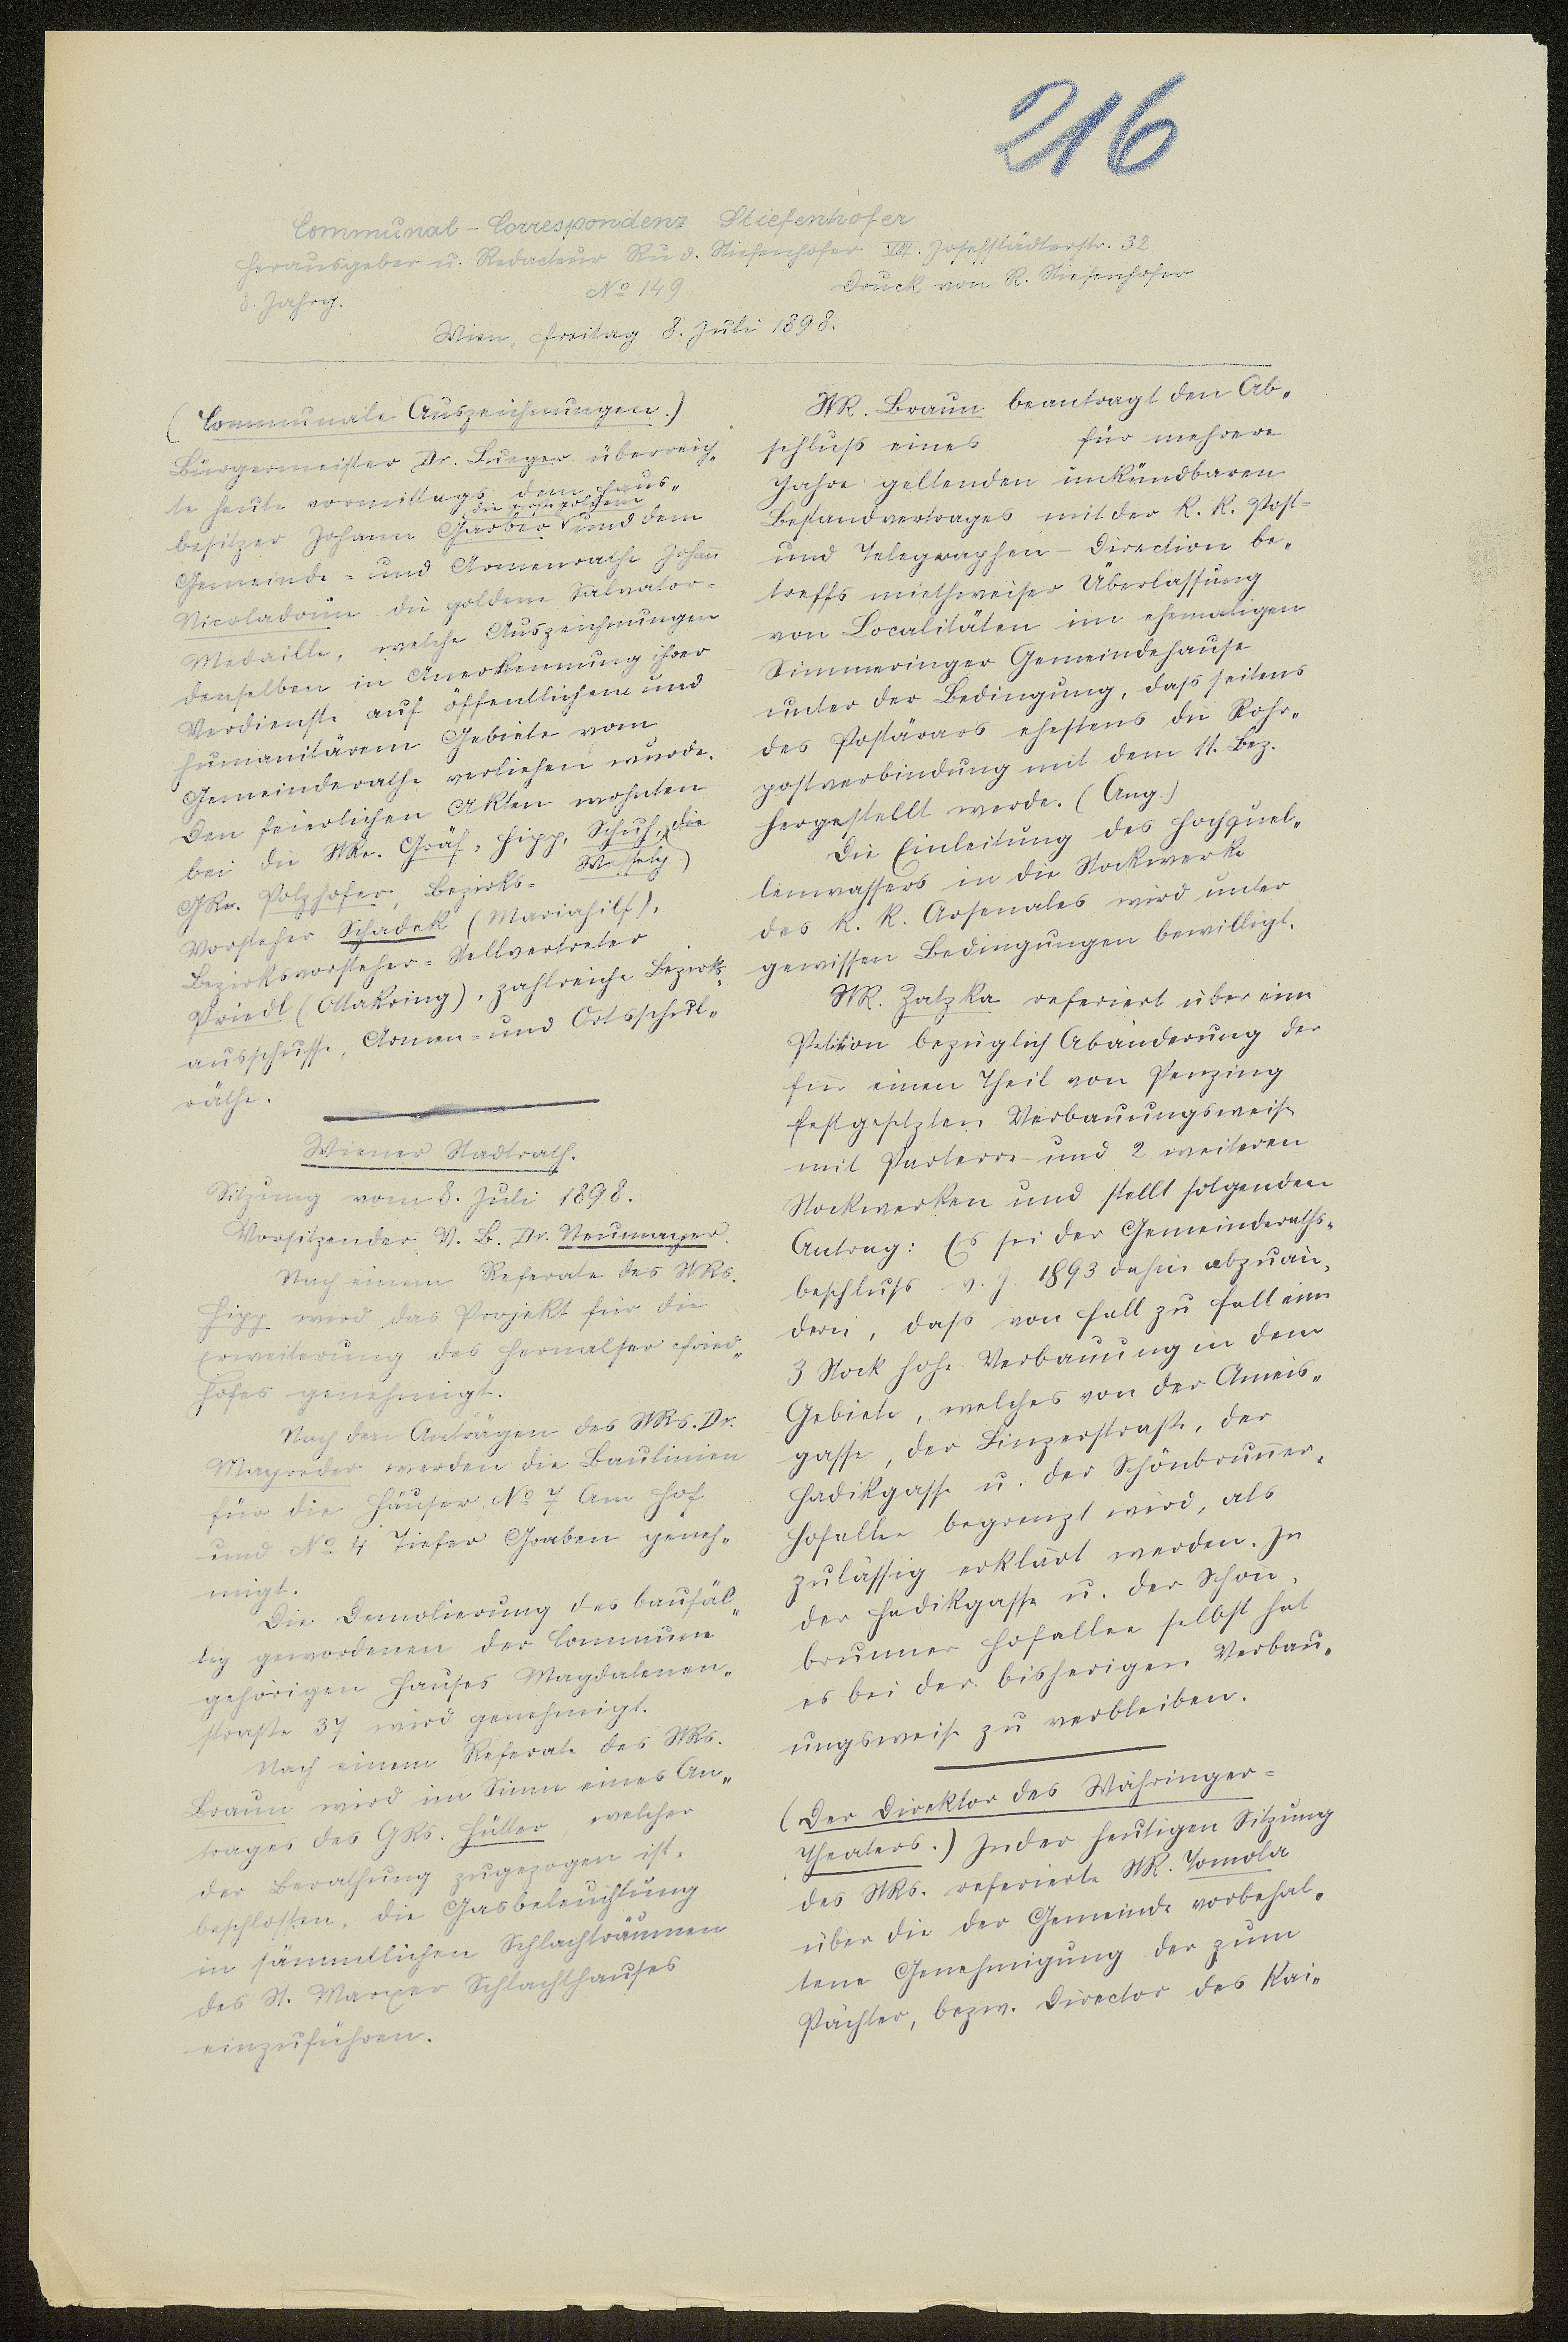 216
Communal-Correspondenz Stiefenhofer
Herausgeber u. Redacteur Rud. Stiefenhofer VIII. Josefstädterstr. 32
8. Jahrg. No 149 Druck von R. Stiefenhofer
Wien, Freitag 8. Juli 1898.
(Communale Auszeichnungen.)
Bürgermeister Dr. Lueger überreich„
te heute vormittags dem Haus„
besitzer Johann Garber und dem
Gemeinde- und Armenrathe Johañ
Nicoladoni die goldene Salvator-
Medaille, welche Auszeichnungen
denselben in Anerkennung ihrer
Verdienste auf öffentlichem und
humanitärem Gebiete vom
Gemeinderathe verliehen wurde.
Den feierlichen Akten wohnten
bei die StRe. Gräf, Hipp, Schuh, die
GRe. Polzhofer, Wessely, Bezirks-
vorsteher Schadek (Mariahilf),
Bezirksvorsteher-Stellvertreter
Priedl (Ottakring), zahlreiche Bezirks„
ausschüsse, Armen- und Ortsschul„
räthe.
Wiener Stadtrath.
Sitzung vom 8. Juli 1898.
Vorsitzender V. B. Dr. Neumayer.
Nach einem Referate des StRs.
Hipp wird das Projekt für die
Erweiterung des Hernalser Fried„
hofes genehmigt.
Nach den Anträgen des StRs. Dr.
Mayreder werden die Baulinien
für die Häuser No 7 Am Hof
und No 4 Tiefer Graben geneh„
migt.
Die Demolierung des baufäl„
lig gewordenen der Commune
gehörigen Hauses Magdalenen„
straße 37 wird genehmigt.
Nach einem Referate des StRs.
Braun wird im Sinne eines An„
trages des GRs. Hütter welcher
der Berathung zugezogen ist,
beschlossen, die Gasbeleuchtung
in sämmtlichen Schlachträumen
des St. Marxer Schlachthauses
einzuführen.
StR. Braun beantragt den Ab„
schluß eines für mehrere
Jahre geltenden unkündbaren
Bestandvertrages mit der k. k. Post-
und Telegraphen-Direction be„
treffs miethweiser Überlassung
von Localitäten im ehemaligen
Simmeringer Gemeindehause
unter der Bedingung, daß seitens
des Postärars ehestens die Rohr„
postverbindung mit dem 11. Bez.
hergestellt werde. (Ang.)
Die Einleitung des Hochquel„
lenwassers in die Stockwerke
des k. k. Arsenales wird unter
gewissen Bedingungen bewilligt.
StR. Zatzka referiert über eine
Petition bezüglich Abänderung der
für einen Theil von Penzing
festgesetzten Verbauungsweise
mit Parterre und 2 weiteren
Stockwerken und stellt folgenden
Antrag: Es sei der Gemeinderaths-
beschluß v. J. 1893 dahin abzuän„
dern, daß von Fall zu Fall eine
3 Stock hohe Verbauung in dem
Gebiete, welches von der Ameis„
gasse, der Linzerstraße, der
Hadikgasse u. der Schönbruñer„
Hofallee begrenzt wird, als
zulässig erklärt werden. In
der Hadikgasse u. der Schön„
brunner Hofallee selbst hat
es bei der bisherigen Verbau„
ungsweise zu verbleiben.
(Der Direktor des Währinger-
Theaters.) In der heutigen Sitzung
des StRs. referierte StR. Tomola
über die der Gemeinde vorbehal„
tene Genehmigung der zum
Pächter, bezw. Director des Kai„